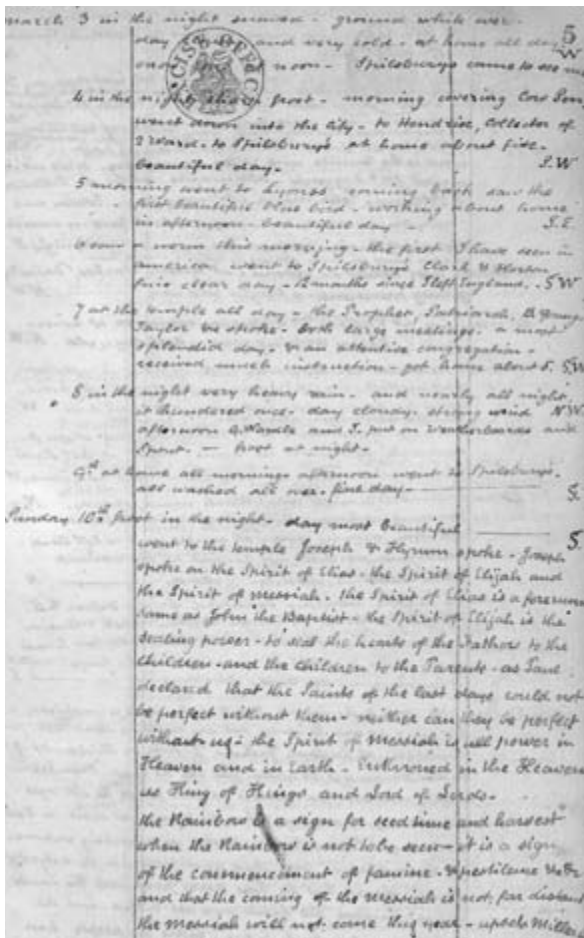 march 3 in the night snowed - ground white over -
day and very cold - at home all day
noon - Spilsburys came to see
5
W
4 in the night sharp frost - morning covering Cow
went down into the City - to Hendrix, Collector of
2 Ward - to Spilsburys at home about five -
beautiful day - S.W
5 morning went to coming back saw the
first beautiful blue bird - working about home
in afternoon - beautiful day - S.E.
6 a worm this morning - the first I have seen in
america went to Spilsburys Clark & Horton
fair clear day - 12 months since I left England. S W
7 at the temple all day - the Prophet, Patriarch, B Young
Taylor &c spoke - both large meetings. a most
splendid day - & an attentive congregation -
received much instruction - got home about 5. S.W
8 in the night very heavy rain - and nearly all night,
it thundered once - day cloudy - strong wind N.W.
afternoon G. Wardle and I. put on Weatherboards and
Spout. - frost at night -
9th at home all morning - afternoon went to Spilsburys.
all washed all over - fine day - S.
Sunday 10th frost in the night - day most beautiful S.
went to the temple Joseph & Hyrum spoke - Joseph
spoke on the Spirit of Elias - the Spirit of Elijah and
the Spirit of messiah - the Spirit of Elias is a forerunner
same as John the Baptist - the Spirit of Elijah is the
Sealing power - to seal the hearts of the Fathers to the
Children - and the Children to the Parents - as Paul
declared that the Saints of the last days could not
be perfect without them - neither can they be perfect
without us - the Spirit of messiah is all power in
Heaven and in Earth - Enthroned in the Heavens
as King of Kings and Lord of Lords -
the Rainbow is a sign for seed time and harvest
when the Rainbow is not to be seen - it is a sign
of the commencement of famine - & pestilence &c &c
and that the coming of the messiah is not far distant
the messiah will not come this year - upsets Miller